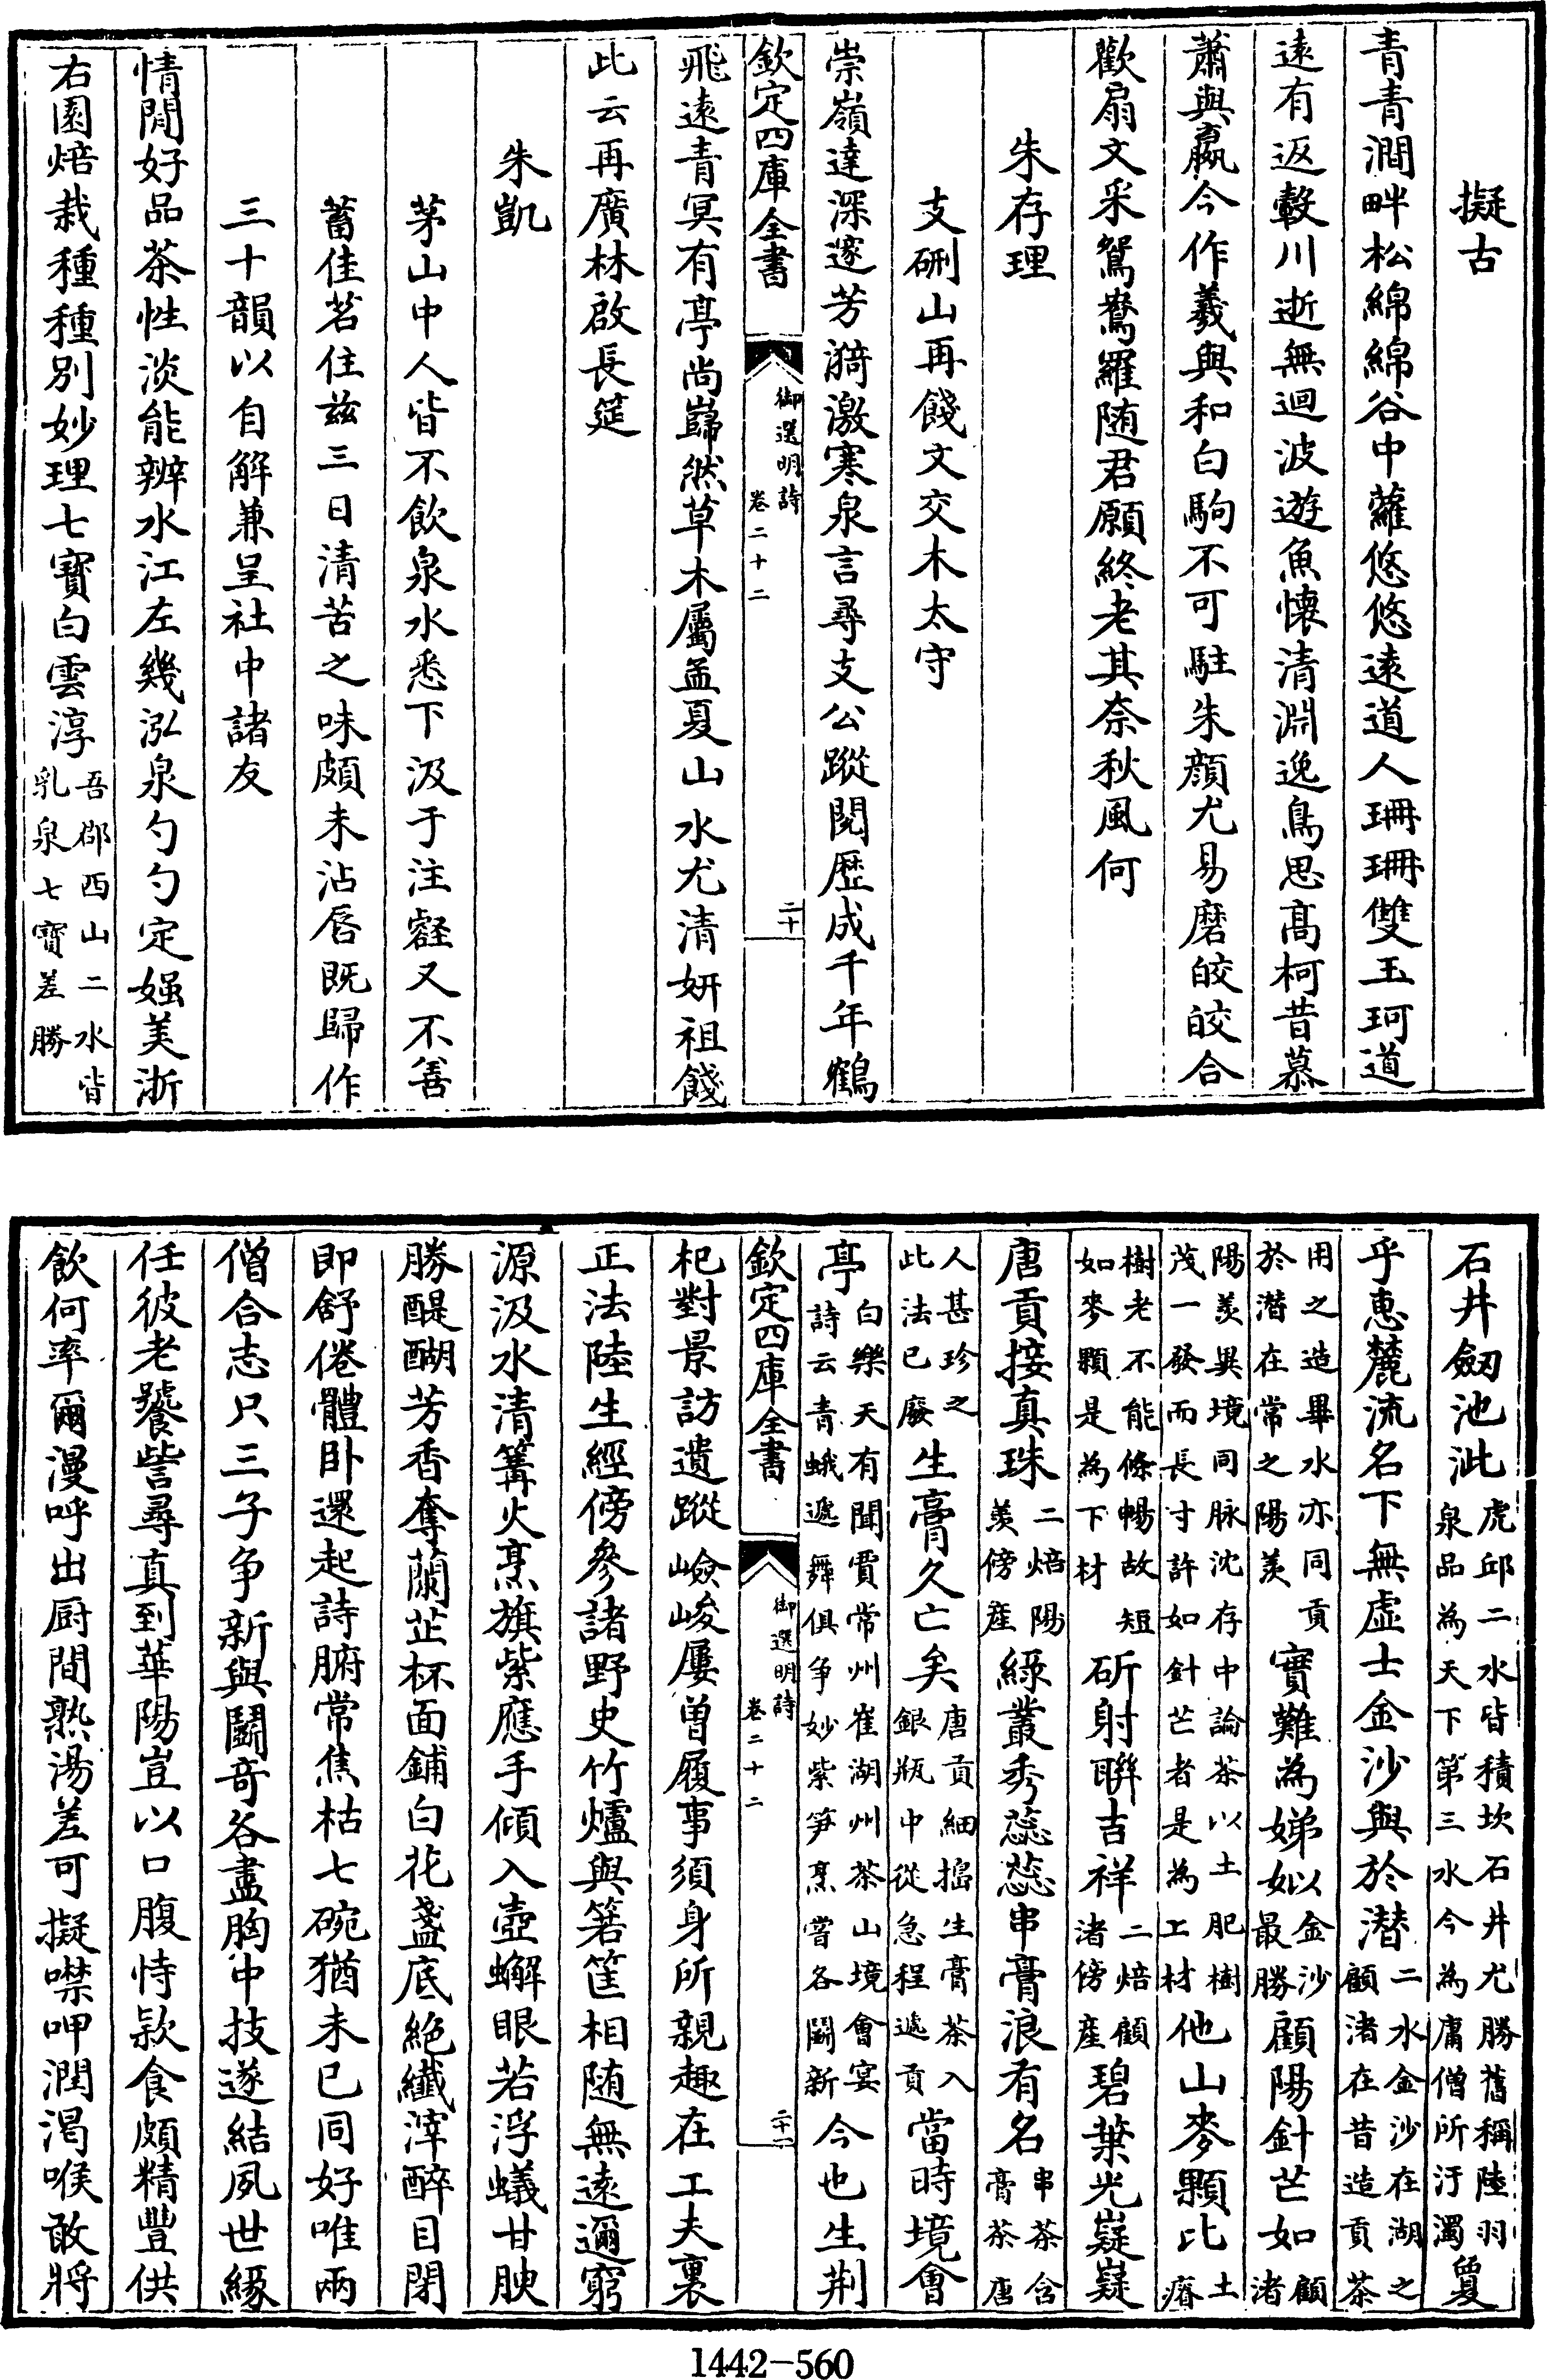 擬古
青青澗畔松綿綿谷中蘿悠悠遠道人珊珊雙玉珂道
遠有返轂川逝無迴波遊魚懐清淵逸鳥思髙柯昔慕
蕭與嬴今作羲與和白駒不可駐朱顔尤易磨皎皎合
歡扇文采鴛鴦羅随君願終老其奈秋風何
朱存理
支硎山再餞文交木太守
崇嶺達深邃芳漪激寒泉言尋支公蹤閲歴成千年鶴
欽定四庫全書
御選明詩
卷二十二
二十
飛遠青冥有亭尚巋然草木屬孟夏山水尤清妍祖餞
此云再廣林啟長筵
朱凱
茅山中人皆不飲泉水悉下汲于注壑又不善
蓄佳茗住兹三日清苦之味頗未沾唇既歸作
三十韻以自解兼呈社中諸友
情閒好品茶性淡能辨水江左幾泓泉勺勺定媸美浙
右園焙栽種種別妙理七寳白雲淳吾郡西山二水皆
乳泉七寳差勝
石井劒池泚虎邱二水皆積坎石井尤勝舊稱陸羽
泉品為天下第三水今為庸僧所汙濁夐
乎恵麓流名下無虚士金沙與於潜二水金沙在湖之
顧渚在昔造貢茶
用之造畢水亦同貢
於潜在常之陽羡實難為娣姒金沙
最勝顧陽針芒如顧
渚
陽羡異境同脉沈存中論茶以土肥樹
茂一發而長寸許如針芒者是為上材他山麥顆比土
瘠
樹老不能條暢故短
如麥顆是為下材斫射聨吉祥二焙顧
渚傍産碧葉光嶷嶷
唐貢接真珠二焙陽
羡傍産緑叢秀蕊蕊串膏浪有名串茶含
膏茶唐
人甚珍之
此法已廢生膏久亡矣唐貢細搗生膏茶入
銀瓶中從急程遞貢當時境會
亭白樂天有聞賈常州崔湖州茶山境會宴
詩云青蛾遞舞俱争妙紫筍烹嘗各鬭新今也生荆
欽定四庫全書
御選明詩
卷二十二
二十一
杞對景訪遺蹤嶮峻屢曽履事須身所親趣在工夫裏
正法陸生經傍參諸野史竹爐與箬筐相随無遠邇窮
源汲水清篝火烹旗紫應手傾入壺蠏眼若浮蟻甘腴
勝醍醐芳香奪蘭芷杯面鋪白花盞底絶纎滓醉目閉
即舒倦體卧還起詩腑常焦枯七碗猶未已同好唯兩
僧合志只三子争新與鬭竒各盡胸中技遂結夙世緣
任彼老饕訾尋真到華陽豈以口腹恃欵食頗精豐供
飲何率爾漫呼出厨間熟湯差可擬噤呷潤渴喉敢將
1442-560